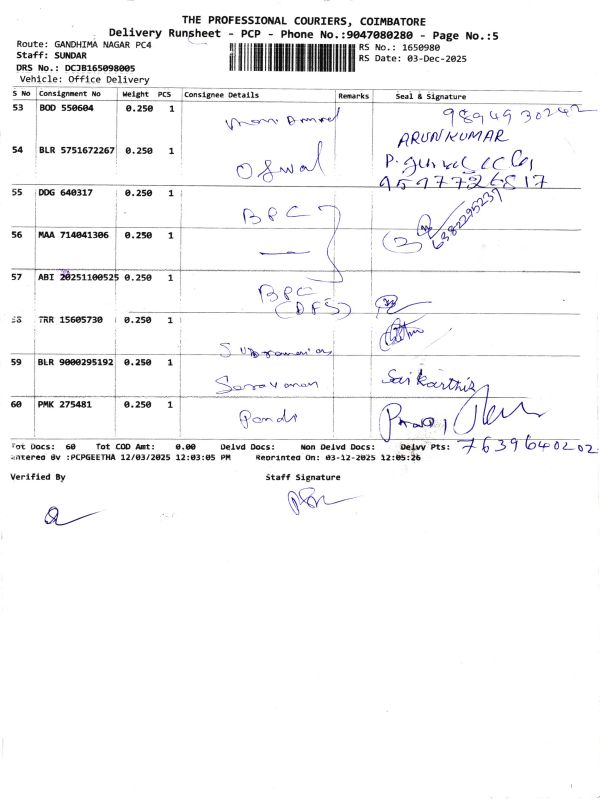 THE PROFESSIONAL COURIERS, COIMBATORE
Delivery Runsheet - PCP - Phone No.:9047080280 - Page No.:5
Route: GANDHIMA NAGAR PC4 RS No.: 1650980
Staff: SUNDAR RS Date: 03-Dec-2025
DRS No.: DCJB165098005
Vehicle: Office Delivery
S No Consignment No Weight PCS Consignee Details Remarks Seal & Signature
53 BOD 550604 0.250 1
ARUNKUMAR
54 BLR 5751672267 0.250 1
55 DDG 640317 0.250 1 BPC
6382295237
56 MAA 714041306 0.250 1
57 ABI 20251100525 0.250 1 BPC
(DFS)
58 TRR 15605730 0.250 1
59 BLR 9000295192 0.250 1 Saravanan Saikarthik
60 PMK 275481 0.250 1
7639640202
Tot Docs: 60 Tot COD Amt: 0.00 Delvd Docs: Non Delvd Docs: Delvy Pts:
Entered By :PCPGEETHA 12/03/2025 12:03:05 PM Reprinted On: 03-12-2025 12:05:26
Verified By Staff Signature